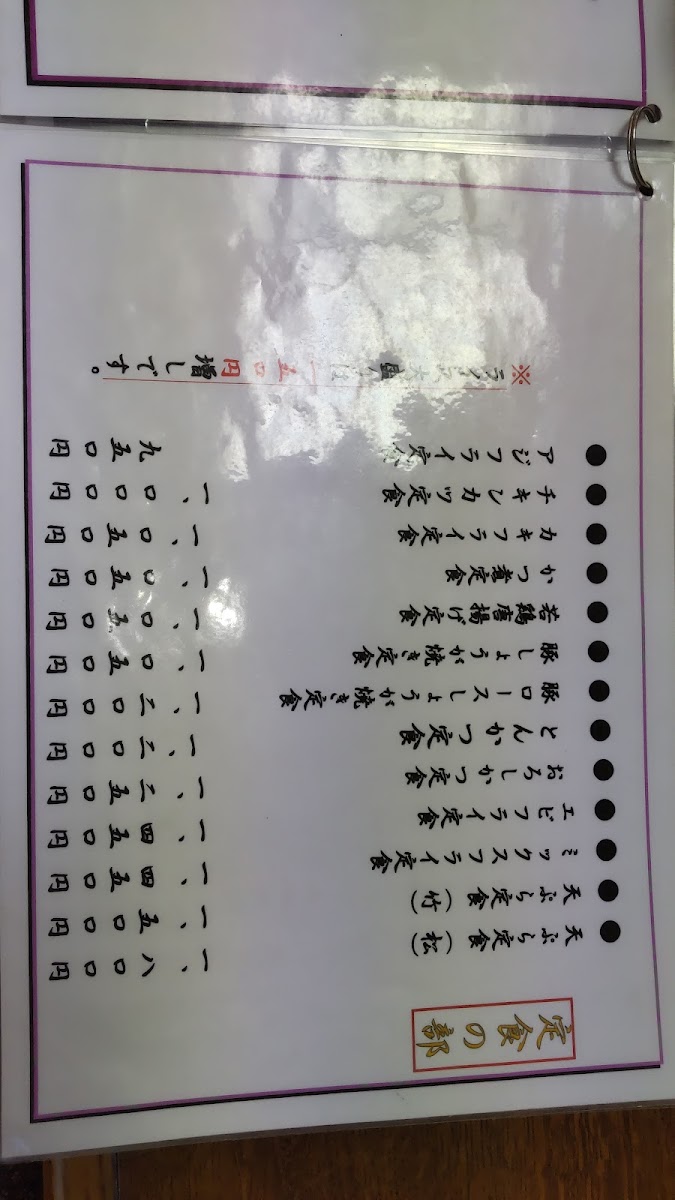 定食の部
●天ぷら定食(松) 一、八〇〇円
●天ぷら定食(竹) 一、五〇〇円
●ミックスフライ定食 一、四五〇円
●エビフライ定食 一、四五〇円
●おろしかつ定食 一、二五〇円
●とんかつ定食 一、二〇〇円
●豚ロースしょうが焼き定食 一、二〇〇円
●豚しょうが焼き定食 一、〇五〇円
●若鶏唐揚げ定食 一、〇五〇円
●かつ煮定食 一、〇五〇円
●カキフライ定食 一、〇五〇円
●チキンカツ定食 一、〇〇〇円
●アジフライ定食 九五〇円
※大盛は一五〇円増しです。